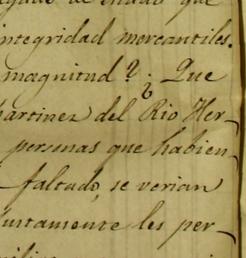 de que
integridad mercantiles.
magnitud? ¿Que
Martinez del Rio Her-
personas que habien-
faltado, se verian
justamente les per-